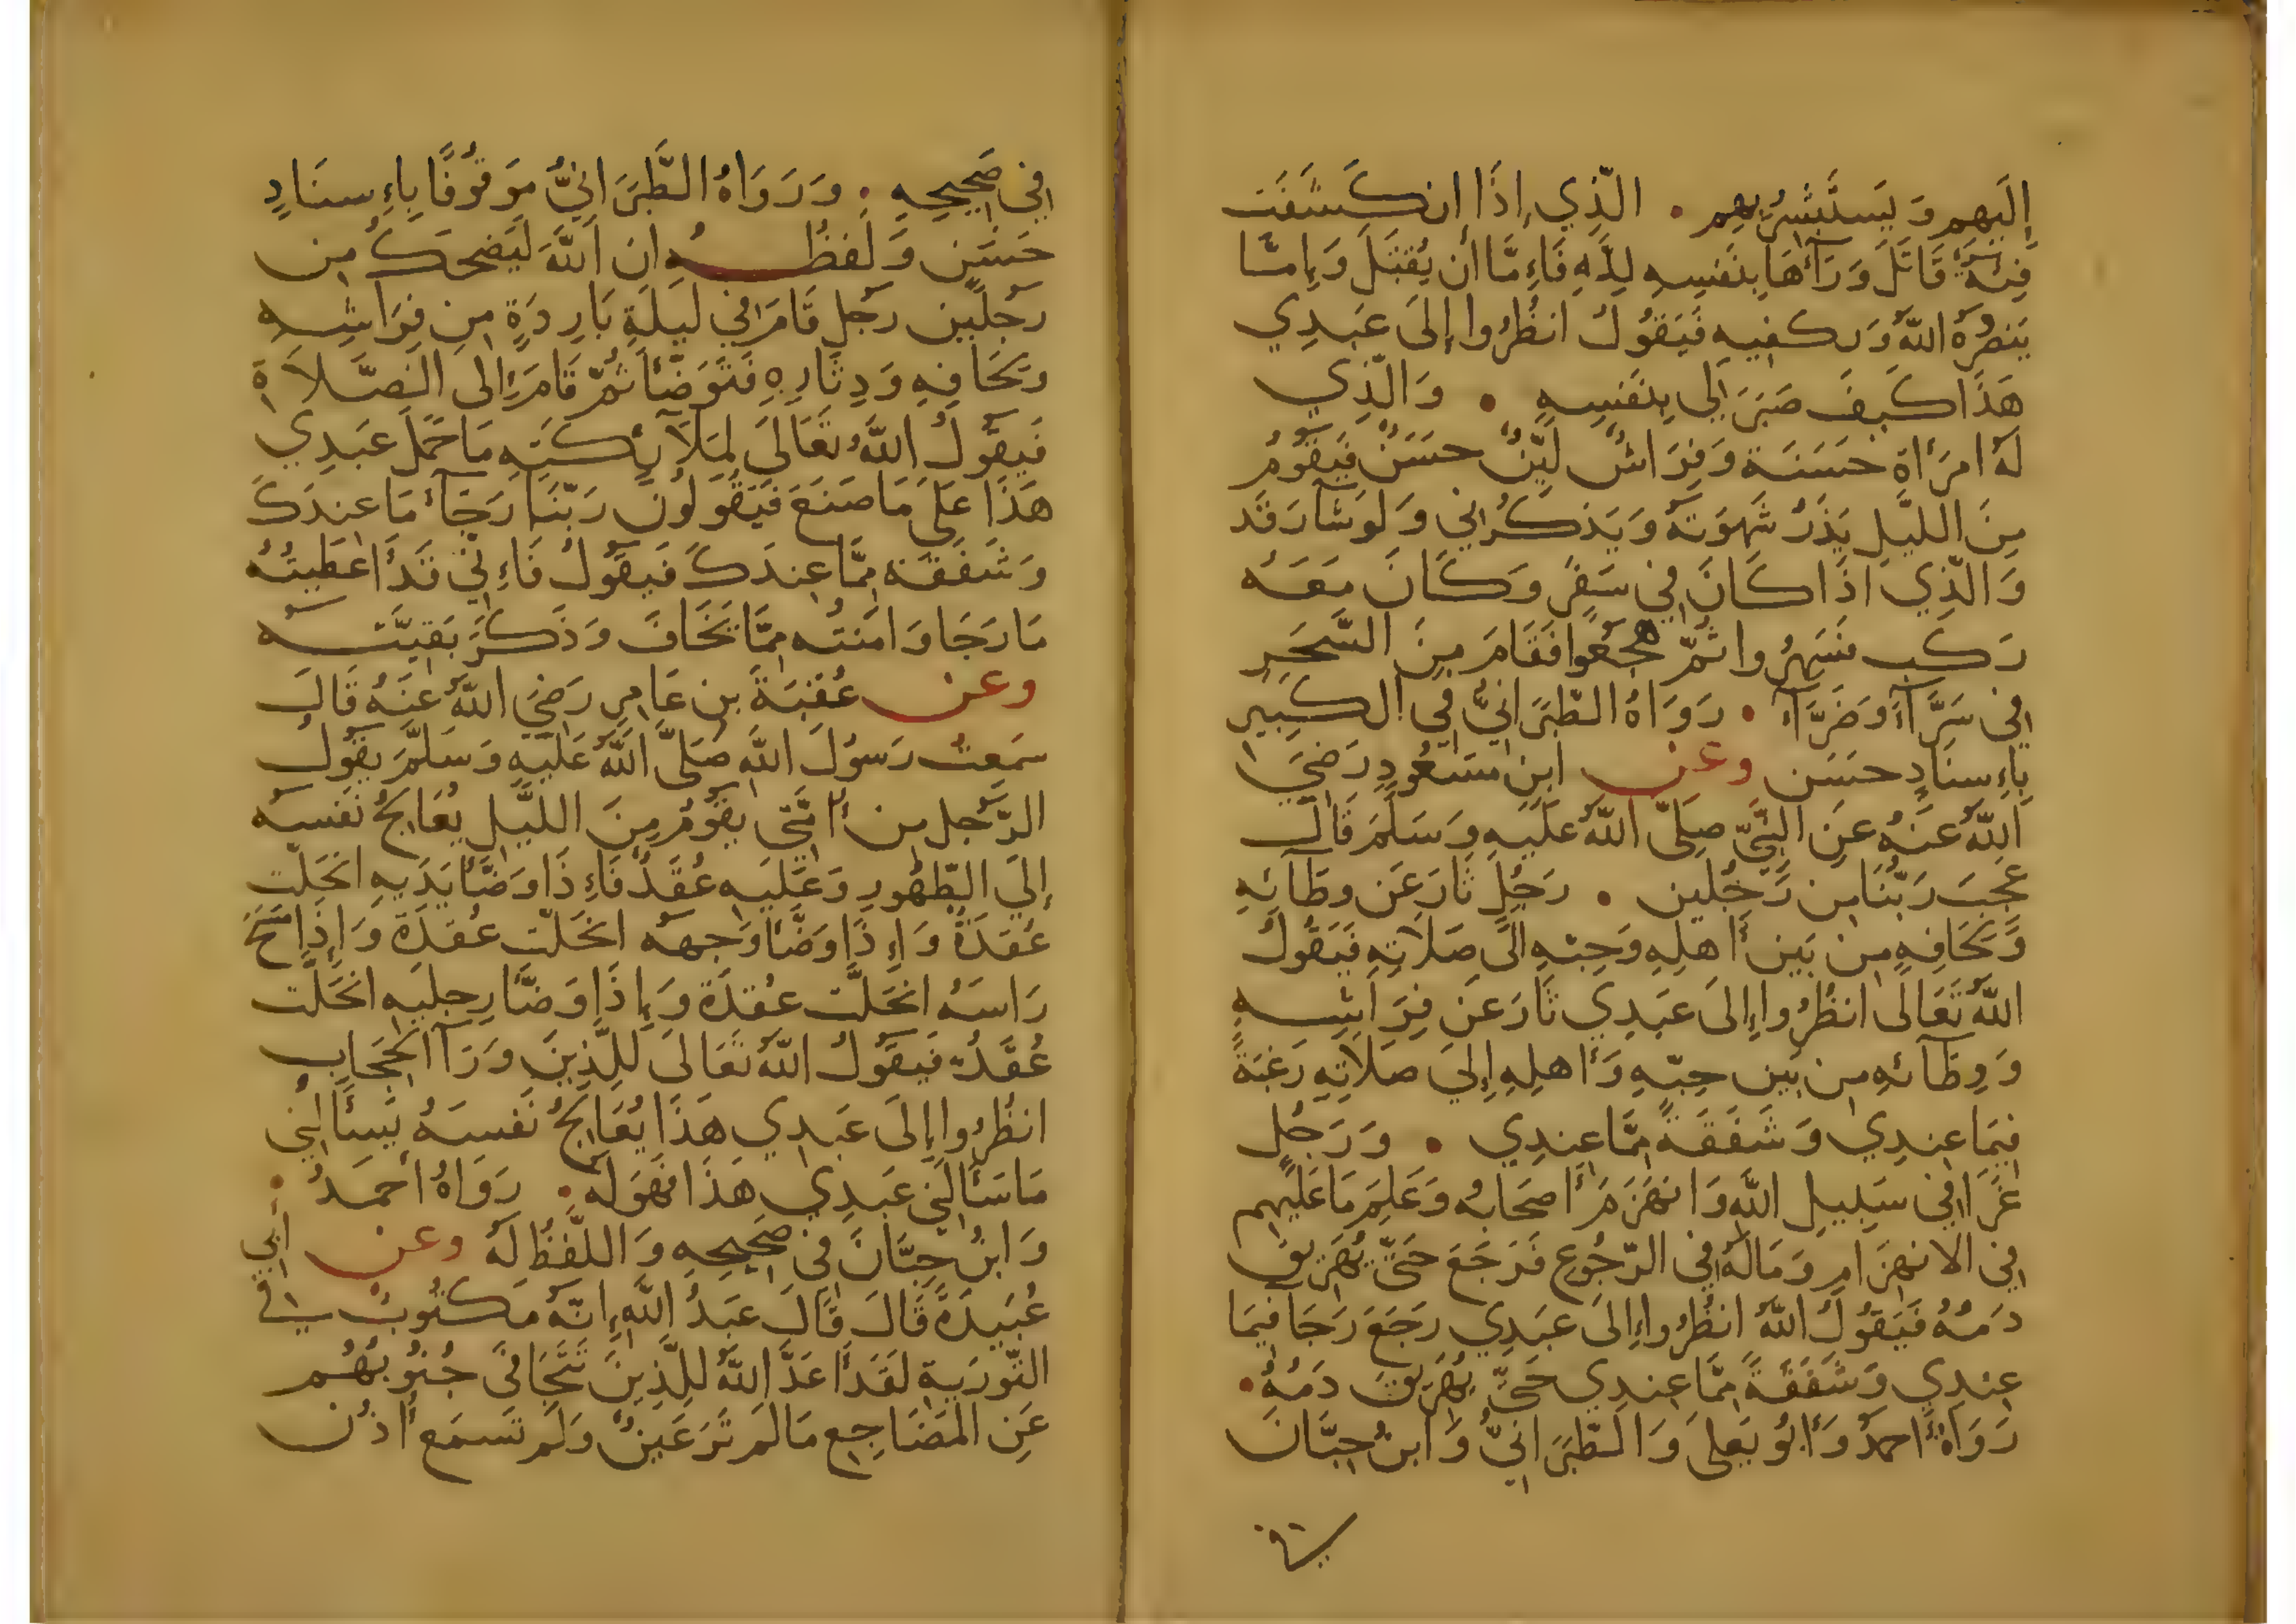 إِلَيهِم وَيَستَبشِرُ بِهِم . الَّذِي إِذَا إِنكَشَفَت
فِئَةٌ قَاتَلَ وَرَآءَهَا بِنَفسِهِ لِلَّهِ فَاءِمَّا أَن يُقتَلَ وَإِمَّا
يَنصُرُهُ اللَّهُ وَيَكفِيهِ فَيَقُولُ انظُرُوا إِلَى عَبدِي
هَذَا كَيفَ صَبَرَ لِي بِنَفسِهِ . وَالَّذِي
لَهُ امرَأَة حَسَنَة وَفِرَاشٌ لَيِّنٌ حَسَنٌ فَيَقُومُ
مِنَ اللَّيلِ يَذَرُ شَهوَتَهُ وَيَذكُرُنِي وَلَو شَآ رَقَد
وَالَّذِي اذَا كَانَ فِي سَفَرٍ وَكَانَ مَعَهُ
رَكب فَسَهِرُوا ثُمَّ هَجَعُوا فَقَامَ مِنَ السَّحَرِ
فِي سَرَّآءَ وَضَرَّآءَ . رَوَاهُ الطَّبَرَانِيُّ فِي الكَبِيرِ
بِاءِسنَادٍ حَسَن وعن ابنِ مَسعُودٍ رَضِيَ
اللَّهُ عَنهُ عَنِ النَّبِيِّ صَلَّى اللَّهُ عَلَيهِ وَسَلَّمَ قَالَ
عَجِبَ رَبُّنَا مِن رَجُلَين . رَجُلٍ ثَارَ عَن وِطَآئِهِ
وَلِحَافِهِ مِن بَينِ أَهلِهِ وَحِبّهِ الَى صَلَاتِهِ فَيَقُولُ
اللَّهُ تَعَالَى انظُرُوا إِلَى عَبدِي ثَارَ عَن فِرَاشِهِ
وَوِطَائِهِ مِن بَينِ حِبِّهِ وَأَهلِهِ إِلَى صَلَاتِهِ رَغبَةً
فِيمَا عِندِي وَشَفَقَةً مِمَّا عِندِي . وَرَجُلٍ
غَزَا فِي سَبِيلِ اللَّهِ وَانهَزَمَ أَصحَابُهُ وَعَلِمَ مَا عَلَيهِم
فِي الانهِزَامِ وَمَا لَهُ فِي الرُّجُوعِ فَرَجَعَ حَتَّى يُهَرِيقَ
دَمَهُ فَيَقُولُ اللَّهُ انظُرُوا إِلَى عَبدِي رَجَعَ رَجَآ فِيمَا
عِندِي وَشَفَقَةً مِمَّا عِندِي حَتَّى يُهَرِيقَ دَمَهُ .
رَوَاهُ أَحمَدُ وَأَبُو يَعلَى وَالطَّبَرَانِيُّ وَابنُ حِبَّانَ
فِي صَحِيحِهِ . وَرَوَاهُ الطَّبَرَانِيُّ مَوقُوفًا بِاءِسنَادٍ
حَسَنٍ وَلَفظُهُ ان اللَّهَ لَيَضحَكُ مِن
رَجُلَين رَجُلٍ قَامَ فِي لَيلَةٍ بَارِدَةٍ مِن فِرَاشِهِ
وَلِحَافِهِ وَدِثَارِهِ فَتَوَضَّأَ ثُمَّ قَامَ إِلى الصَّلَاةِ
فَيَقُولُ اللَّهُ تَعَالَى لِمَلَآئِكَتِهِ مَا حَمَلَ عَبدِي
هَذَا عَلَى مَا صَنَعَ فَيَقُولُونَ رَبَّنَا رَجَآءَ مَا عِندَكَ
وَشَفَقَة مِمَّا عِندَكَ فَيَقُولُ فَاءِنِّي قَد أَعطَيتُهُ
مَا رَجَا وَامَنتُه مِمَّا يَخَافُ وَذَكَرَ بَقِيَّتَهُ
وعن عُقبَةَ بنِ عَامِرٍ رَضِيَ اللَّهُ عَنهُ قَالَ
سَمِعتُ رَسُولَ اللَّهِ صَلَّى اللَّهُ عَلَيهِ وَسَلَّمَ يَقُولُ
الرَّجُلُ مِن أُمَّتِي يَقُومُ مِنَ اللَّيلِ يُعَالِجُ نَفسَهُ
إِلَى الطَّهُورِ وَعَلَيهِ عُقَدٌ فَاءِذَا وَضَّأَ يَدَيهِ انحَلَّت
عُقدَةٌ وَاءِذَا وَضَّأَ وَجهَهُ انحَلَّت عُقدَةٌ وَاِذَا مَسَحَ
رَاسَهُ انحَلَّت عُقدَة وَإِذَا وَضَّأَ رِجلَيهِ انحَلَّت
عُقَدُهُ فَيَقُولُ اللَّهُ تَعَالَى لِلَّذِينَ وَرَآ الحِجَابِ
انظُرُوا إِلَى عَبدِي هَذَا يُعَالِجُ نَفسَهُ يَسأَلُنِي
مَا سَأَلَنِي عَبدِي هَذَا فَهُوَ لَهُ . رَوَاهُ أَحمَدُ .
وَابنُ حِبَّانَ فِي صَحِيحِهِ وَاللَّفظُ لَهُ وعن أَبِي
عُبَيدَةَ قَالَ قَالَ عَبدُ اللَّهِ إِنَّهُ مَكتُوبٌ فِي
التَّورَيةِ لَقَد أَعَدَّ اللَّهُ لِلَّذِينَ تَتَجَافَى جُنُوبُهُم
عَنِ المَضَاجِعِ مَا لَم تَرَ عَينٌ وَلَم تَسمَع أُذُن